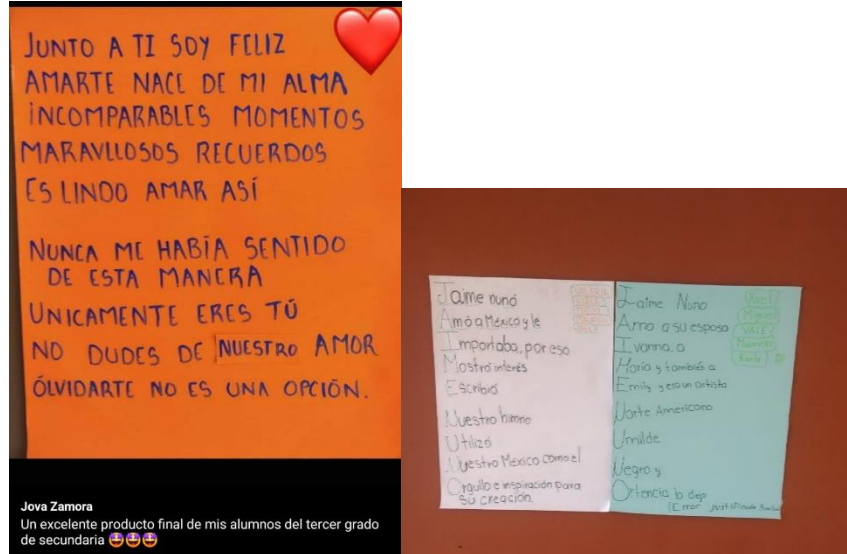 JUNTO A TI SOY FELIZ
AMARTE NACE DE MI ALMA
INCOMPARABLES MOMENTOS
MARAVLLOSOS RECUERDOS
ES LINDO AMAR ASÍ
NUNCA ME HABÍA SENTIDO
DE ESTA MANERA
UNICAMENTE ERES TÚ
NO DUDES DE NUESTRO AMOR
ÓLVIDARTE NO ES UNA OPCIÓN.
Jova Zamora
Un excelente producto final de mis alumnos del tercer grado
de secundaria 🤩🤩🤩
Jaime nunó
Amó a México y le
Importaba, por eso
Mostró interés
Escribió
Nuestro himno
Utilizó
Nuestro México como el
Orgullo e inspiración para
su creación.
Jaime Nuno
Amo a su esposa
Ivanna, a
María y también a
Emily y era un artista
Norte Americano
Umilde
Negro y
Ortencia lo dejo
(Error
Axel
Miguel
VALE